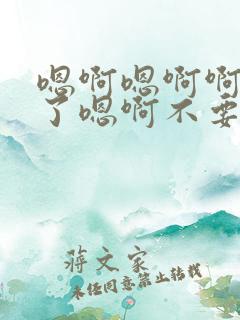 嗯啊嗯啊啊
了嗯啊不要
蒋文家
未经同意禁止转载